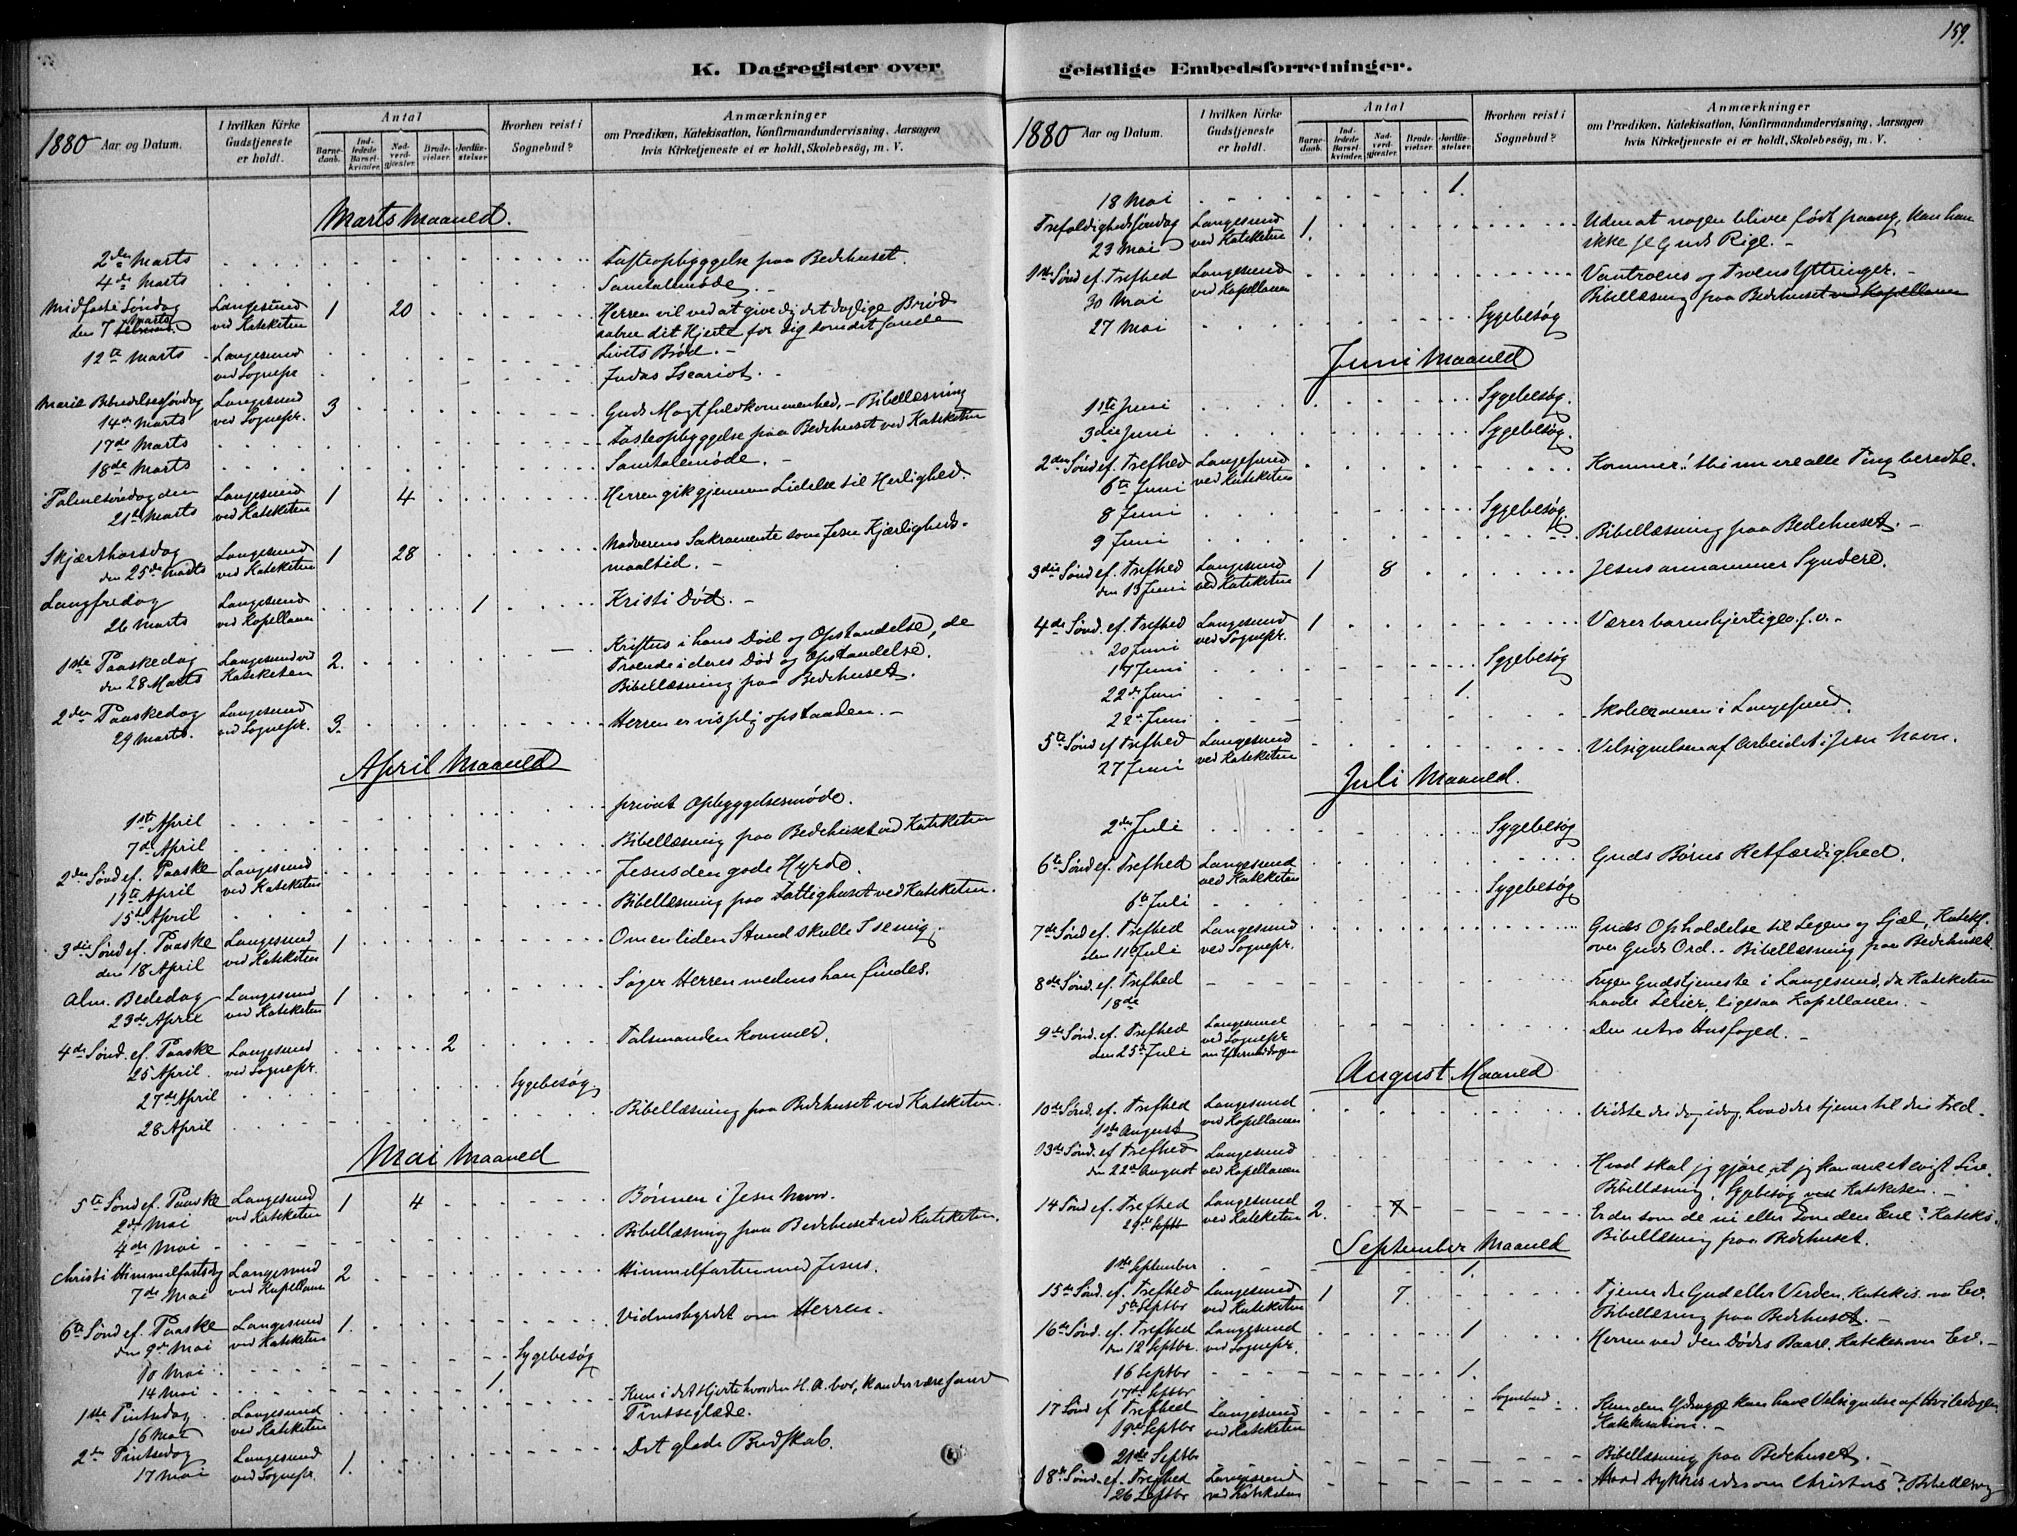 159.
K. Dagregister over
1880 Aar og Datum.
I hvilken Kirke Gudstjeneste er holdt.
Antal
Barnedaab.
Indledede Barselkvinder.
Nadverdgjæster.
Brudevielser.
Jordfæstelser.
Hvorhen reist i Sognebud?
Anmærkninger
om Prædiken, Katekisation, Konfirmandundervisning, Aarsagen
hvis Kirketjeneste ei er holdt, Skolebesög, m. V.
Marts Maaned.
2den Marts Fasteopbyggelse paa Bedehuset.
4de Marts Samtalemøde. -
Midfaste Søndag Langesund 1 20 Herren vil ved at give dig det daglige Brød
den 7 Marts ved Kateketen aabne dit Hjerte for dig som det sande
Livets Brød. -
12te Marts Langesund ved Sognepr. Judas Iscariot. -
Mariæ Bebudelsessøndag Langesund 3 Guds Magtfuldkommenhed. - Bibellæsning
14de Marts ved Sognepr.
17de Marts Fasteopbyggelse paa Bedehuset ved Kateketen
18de Marts Samtalemøde. -
Palmesøndag den Langesund 1 4 Herren gik gjennem Lidelse til Herlighed.
21de Marts ved Kateketen
Skjærthorsdag Langesund 1 28 Nadverens Sakramente som Jesu Kjærligheds-
den 25de Marts ved Kateketen maaltid. -
Langfredag Langesund 1 Kristi Død. -
26 Marts ved Kapellanen
1ste Paaskedag Langesund ved 2. Kristus i hans Død og Opstandelse, de
den 28 Marts Kateketen Troende i deres Død og Opstandelse.
Bibellæsning paa Bedehuset.
2den Paaskedag Langesund 3. Herren er visselig opstanden. -
29 Marts. ved Sognepr.
April Maaned
1ste April privat Opbyggelsesmøde.
7de April Bibellæsning paa Bedehuset ved Kateketen
2den Sønd ef. Paaske Langesund Jesus den gode Hyrde.
11te April ved Kateketen
15de April Bibellæsning paa Fattighuset ved Kateketen.
3die Sønd ef. Paaske Langesund 1 Om en liden Stund skulle I se mig.
den 18 April ved Kateketen
Alm. Bededag Langesund 1 Søger Herren medens han findes.
23de April ved Kateketen
4de Sønd. ef. Paaske Langesund 2 Talsmanden kommer.
25 April ved Sognepr.
27de April Sygebesøg.
28 April Bibellæsning paa Bedehuset ved Kateketen.
Mai Maaned
5te Sønd ef. Paaske Langesund 1 4 Bønnen i Jesu Navn.
2de Mai ved Kateketen
4de Mai Bibellæsning paa Bedehuset ved Kateketen.
Christi Himmelfartsdag Langesund 2 Himmelfarten med Jesus.
7de Mai ved Kapellanen
6te Sønd ef. Paaske Langesund 1. Vidnesbyrdet om Herren.
den 9de Mai ved Kateketen
10 Mai Sygebesøg
14 Mai 1.
1ste Pintsedag Langesund Kun i det Hjerte hvor den H. A. bor, kan der være sand
16 Mai ved Kateketen Pintseglæde.
2den Pintsedag Langesund 1. Det glade Budskab.
17 Mai ved Sognepr.
geistlige Embedsforretninger.
1880 Aar og Datum.
I hvilken Kirke Gudstjeneste er holdt.
Antal
Barnedaab.
Indledede Barselkvinder.
Nadverdgjæster.
Brudevielser.
Jordfæstelser.
Hvorhen reist i Sognebud?
Anmærkninger
om Prædiken, Katekisation, Konfirmandundervisning, Aarsagen
hvis Kirketjeneste ei er holdt, Skolebesög, m. V.
18 Mai 1.
Trefoldighedssøndag Langesund 1. Uden at nogen bliver født paany, kan han
23 Mai ved Kateketen ikke se Guds Rige. -
1ste Sønd ef. Trefhed Langesund Vantroens og Troens Yttringer. -
30 Mai ved Kapellanen Bibellæsning paa Bedehuset ved Kapellanen
27 Mai Sygebesøg
Juni Maaned
1ste Juni Sygebesøg.
3die Juni Sygebesøg.
2den Sønd ef. Trefhed Langesund Kommer! thi nu ere alle Ting beredte.
6te Juni ved Kateketen
8 Juni Sygebesøg
9 Juni Bibellæsning paa Bedehuset. -
3die Sønd ef. Trefhed Langesund 1 8 Jesus annammer Syndere.
den 13 Juni ved Kateketen
4de Sønd. ef. Trefhed Langesund 1 Værer barmhjertige o. s. v. -
20 Juni ved Sognepr.
17 Juni Sygebesøg
22de Juni 1.
22de Juni Skolexamen i Langesund.
5te Sønd ef Trefhed Langesund Velsignelsen af Arbeidet i Jesu Navn.
27 Juni ved Kateketen
Juli Maaned.
2den Juli Sygebesøg
6te Sønd ef. Trefhed Langesund ved Kateketen Guds Børns Retfærdighed.
6te Juli Sygebesøg
7de Sønd ef. Trefhed Langesund Guds Opholdelse til Legem og Sjæl, Katekis.
den 11te Juli ved Sognepr. over Guds Ord. - Bibellæsning paa Bedehuset
8de Sønd. ef. Trefhed Ingen Gudstjeneste i Langesund, da Kateketen
18de havde Ferier, ligesaa Kapellanen. -
9de Sønd. ef. Trefhed Langesund Den utro Husfoged. -
den 25de Juli ved Sognepr. om Eftermiddagen
August Maaned
10de Sønd. ef. Trefhed Langesund Vidste du dog idag, hvad der tjener til din Fred.
1ste August ved Kapellanen
13de Sønd. ef Trefhed Langesund Hvad skal jeg gjøre at jeg kan arve et evigt Liv.
den 22de August ved Kapellanen Bibellæsning, Sygebesøg ved Kateketen. -
14 Sønd ef. Trefhed Langesund 2. 7 Er du som de ni eller som den Ene? Katekis.
29de Septb ved Kateketen Bibellæsning paa Bedehuset.
September Maaned
1ste September 1.
15de Sønd. ef. Trefhed Langesund 1 7. Tjener du Gud eller Verden. Katekis. over Ev.
5te Septbr ved Kateketen Bibellæsning paa Bedehuset. -
16de Sønd. ef. Trefhed Langesund 1 Herren ved den Dødes Baare. Katekis over Ev. -
den 12 Septbr. ved Sognepr.
16 Septbr 1.
17de Septbr Sognebud
17 Sønd ef Trefhed Langesund Kun den Ydmyge kan have Velsignelse af Hviledagen
19de Septbr ved Kateketen Katekisation. -
21de Septbr Bibellæsning paa Bedehuset. -
18de Sønd. ef. Trefhed Langesund Hvad tykkes eder om Christus?
26 Septbr ved Kateketen